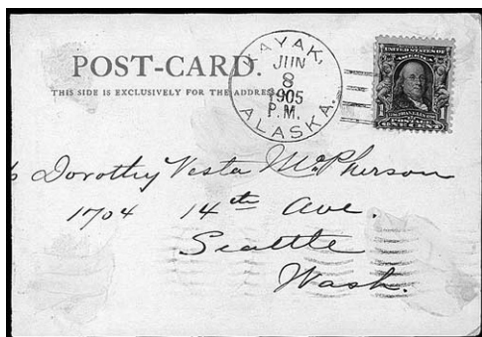 POST-CARD.
THIS SIDE IS EXCLUSIVELY FOR THE ADDRESS.
KAYAK,
JUN
8
1905
P.M.
ALASKA.
Dorothy Vesta McPherson
1704 14th Ave.
Seattle
Wash.